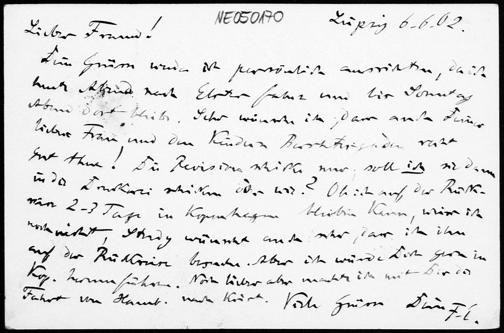 NE050170
Leipzig 6.6.02.
Lieber Freund!
Dein Gruss werde ich persönlich ausrichten, da ich
heute Abend nach Elster fahre und bis Sonntag
Abend dort bleibe. Sehr wünsche ich, dass auch Deiner
lieben Frau und den Kindern recht
gut thue! Die Revision schicke mir, soll ich sie dann
in die Druckerei schicken oder wie? Ob ich auf der Rück-
reise 2-3 Tage in Kopenhagen bleiben kann, weiss ich
noch nicht, Study wünscht auch sehr dass ich ihn
auf der Rückreise besuche. Aber ich würde Dich gern in
Kop. herumführen. Noch lieber aber machte ich mit Dir die
Fahrt von Hamb. nach Viele Grüsse Dein F.E.